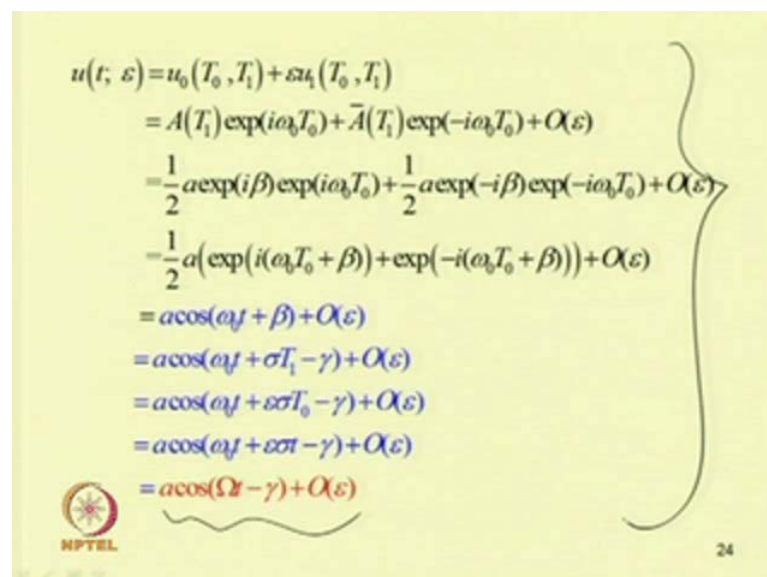 u(t; ε)=u₀(T₀,T₁)+εu₁(T₀,T₁)
=A(T₁)exp(iω₀T₀)+A̅(T₁)exp(-iω₀T₀)+O(ε)
=1/2 aexp(iβ)exp(iω₀T₀)+1/2 aexp(-iβ)exp(-iω₀T₀)+O(ε)
=1/2 a(exp(i(ω₀T₀+β))+exp(-i(ω₀T₀+β)))+O(ε)
=acos(ω₀t+β)+O(ε)
=acos(ω₀t+σT₁-γ)+O(ε)
=acos(ω₀t+εσT₀-γ)+O(ε)
=acos(ω₀t+εσt-γ)+O(ε)
=acos(Ωt-γ)+O(ε)
NPTEL
24